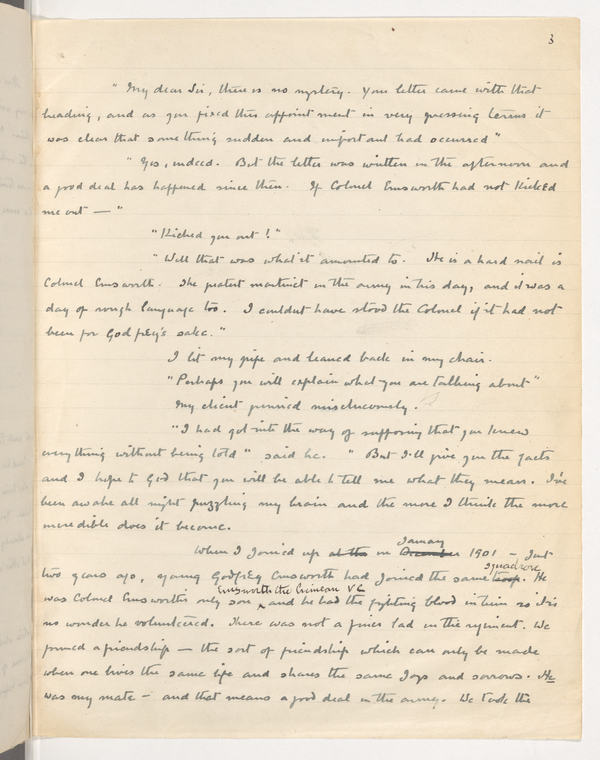 3
" My dear Sir, there is no mystery. Your letter came with that
heading, and as you fixed this appointment in very pressing terms it
was clear that something sudden and important had occurred"
" Yes, indeed. But the letter was written in the afternoon and
a good deal has happened since then. If Colonel Emsworth had not kicked
me out — "
"Kicked you out!"
" Well that was what it amounted to. He is a hard nail is
Colonel Emsworth. The greatest martinet in the army in his day, and it was a
day of rough language too. I couldnt have stood the Colonel if it had not
been for Godfrey's sake."
I lit my pipe and leaned back in my chair.
"Perhaps you will explain what you are talking about"
My client grinned mischievously.
"I had got into the way of supposing that you knew
everything without being told" said he. " But I'll give you the facts
and I hope to God that you will be able to tell me what they mean. I've
been awake all night puzzling my brain and the more I think the more
incredible does it become.
January
When I joined up at the on December 1901 – just
squadron
two years ago, young Godfrey Emsworth had joined the same troop. He
Emsworth the Crimean VC
was Colonel Emsworth's only son, and he had the fighting blood in him so it is
no wonder he volunteered. There was not a finer lad in the regiment. We
formed a friendship — the sort of friendship which can only be made
when one lives the same life and shares the same joys and sorrows. He
was my mate – and that means a good deal in the army. We took the